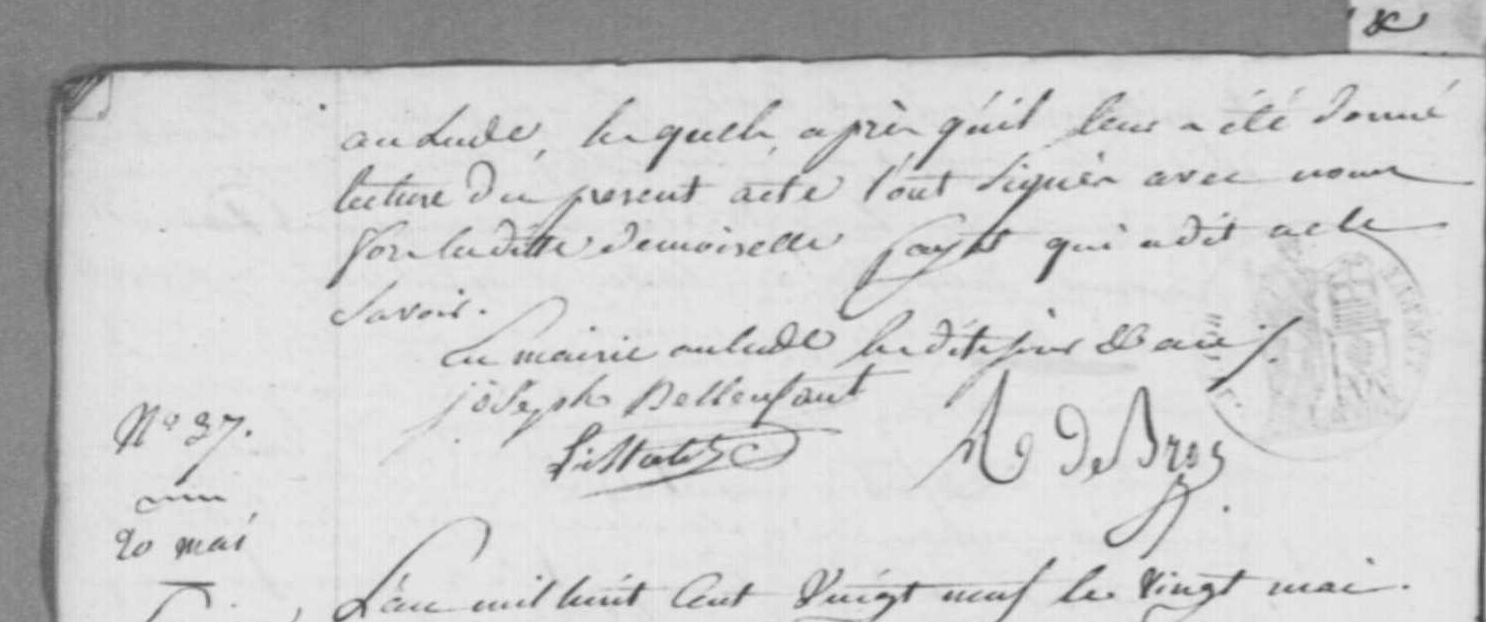 au Lude, lesquels, après qu'il leur a été donné
lecture du present acte l'ont signés avec nous
fors laditte demoiselle qui a dit ne le
savoir.
En mairie au Lude lesdits jour & an
joseph Bellenfant
De Bros
N° 37.
20 mai
L'an mil huit Cent Vingt neuf le Vingt mai.